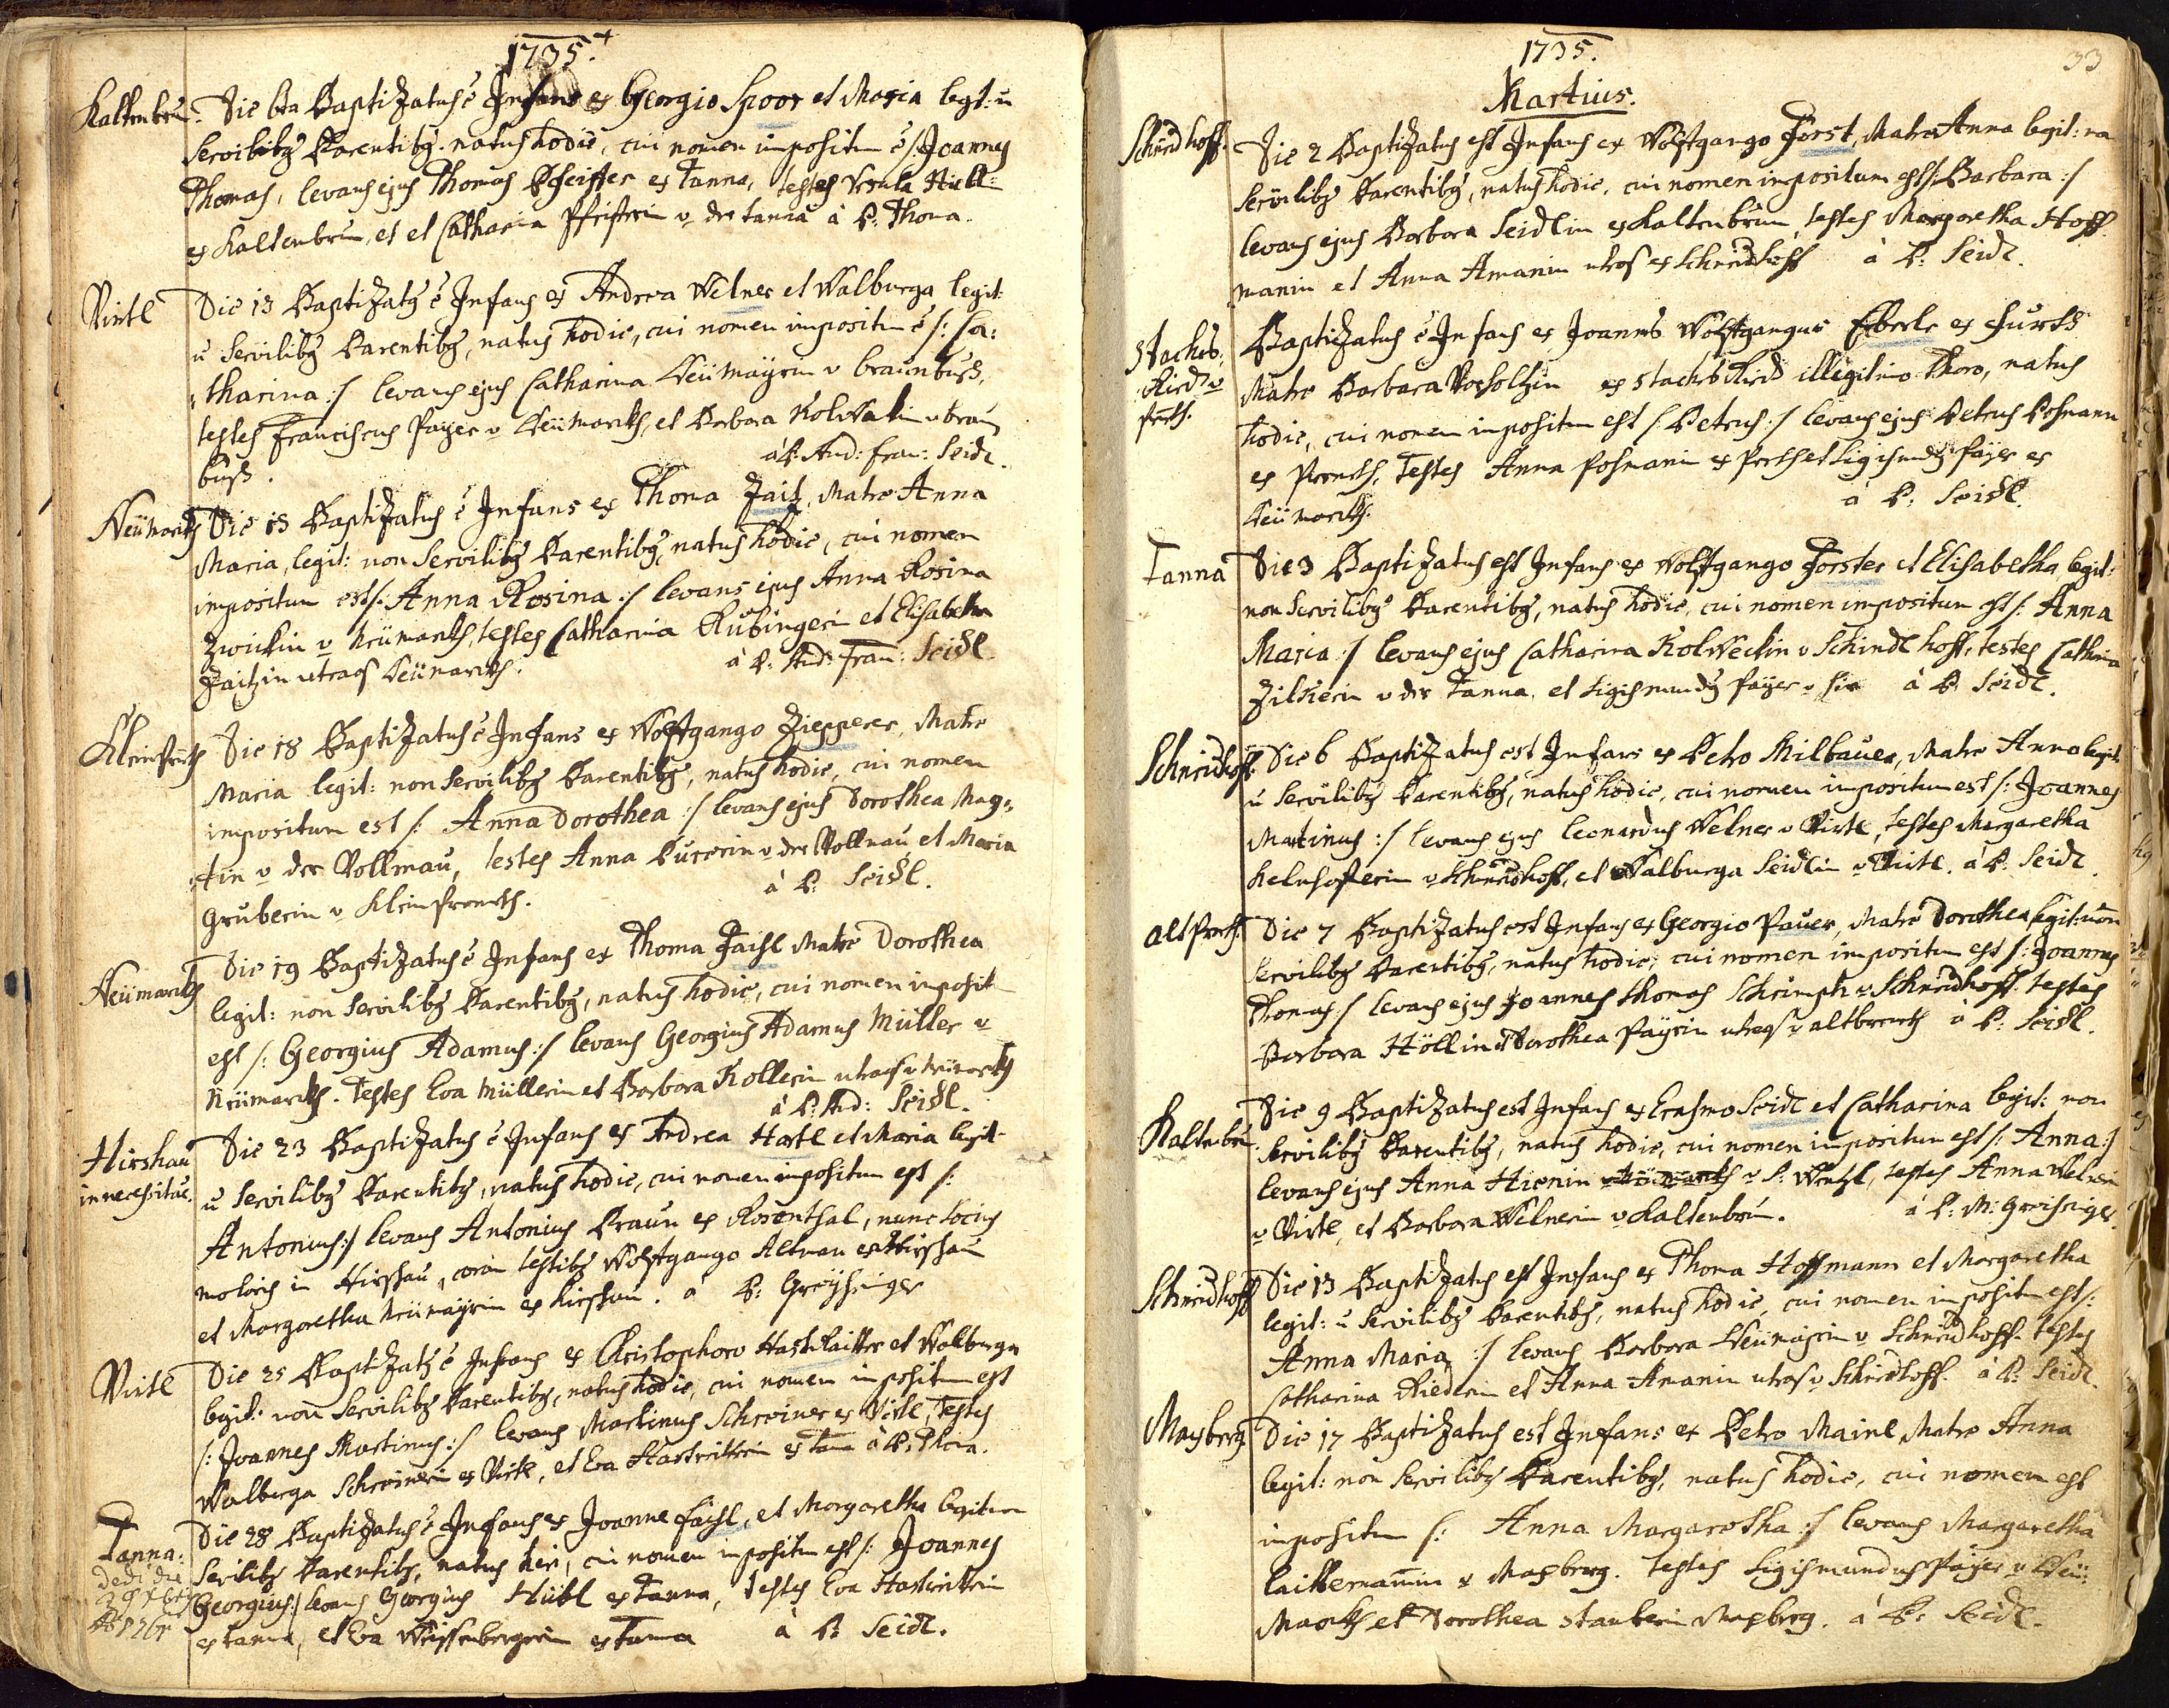 1735.
Kaltenbrun. Die 6ta Baptizatus ē Infans ex Georgio Spoor et Maria legt: ū
Servilibꝫ Parentibꝫ natus hodie, cui nomen impositum ē /: Joannes
Thomas, levans ejus Thomas Pfeiffer ex Tanna, testes Ursula
ex Kaltenbrun, et et Catharia v der tanna à P: Thoma.
Virtl Die 13 Baptizatꝫ ē Infans ex Andrea Welner et Walburga legit:
ū Servilibꝫ Parentibꝫ, natus hodie, cui nomen impositum ē /: Ca:
tharina :/ levans ejus Catharina Neümayrin v braunbuß,
testes Franciscus Payer v Neümarckh, et Barbara v braun
buß. à P: And: Fran: Seidl.
Neümarckh Die 15 Baptizatus ē Infans ex Thoma Zaiz, Matre Anna
Maria, legit: non Servilibꝫ Parentibꝫ, natus hodie, cui nomen
impositum est /: Anna Rosina :/ levans ejus Anna Rosina
Zwickin v Neümarckh, testes Catharina Rübingerin et Elisabetha
Zaitzin utraqs Neümarckh. à P: And: Fran: Seidl.
Kleinprenth Die 18 Baptizatus ē Infans ex Wolfgango Ziepperer, Matre
Maria legit: non Servilibꝫ Parentibꝫ, natus hodie, cui nomen
impositum est /: Anna Dorothea :/ levans ejus Dorothea Mag:
tin v der Vollmau, testes Anna v der Vollmau et Maria
Gruberin v Kleinprenth. à P: Seidl.
Neümarckh Die 19 Baptizatus ē Infans ex Thoma Faisl Matre Dorothea
legit: non Servilibꝫ Parentibꝫ, natus hodie, cui nomen imposit
est /: Georgius Adamus :/ levans Georgius Adamus Müller v
Neümarckh. Testes Eva Müllerin et Barbara Kollerin utraqs v Neümarckh
à P: And: Seidl.
Hirshau in necessitate. Die 23 Baptizatus ē Infans ex Andrea Hartl et Maria legit
ū Servilibꝫ Parentibꝫ, natus hodie, cui nomen impositum est /:
Antonius :/ levans Antonius Braun ex Rosenthal, nunc Socius
moloris in Hirshau, coram testibꝫ Wolfgango Altman ex Hirshau
et Margaretha Neümayrin ex Hirshau. à P: Greysinger
Virtl Die 25 Baptizatꝫ ē Infans ex Christophoro Hastreitter et Walburga
legit: non Servilibꝫ Parentibꝫ, natus hodie, cui nomen impositum est
/: Joannes Martinus :/ levans Martinus Schreiner ex Virtl, Testes
Walburga Schreinerin ex Virtl, et Eva Hastreitterin ex Tanna à P: Thoma.
Tanna: Die 28 Baptizatus ē Infans ex Joanne Faisl, et Margaretha legitim
Servilibꝫ Parentibꝫ, natus heri, cui nomen impositum est /: Joannes
dedi die
Georgius :/ levans Georgius Hübl ex Tanna, testes Eva Hastreitterin
ex tanna, et Eva Weissenbergerin ex Tanna à P: Seidl.
1735.
33
Martius.
Schneidhoff. Die 2 Baptizatus est Infans ex Wolfgango Forst, Matre Anna legit: non
Servilibꝫ Parentibꝫ, natus hodie, cui nomen impositum est /: Barbara :/
levans ejus Barbara Seidlin ex Kaltenbrun, testes Margaretha Hoff
manin et Anna Amanin utraqs ex Schneidhoff à P: Seidl.
Baptizatus ē Infans ex Joannes Wolfgangus Eberle ex Furth
Matre Barbara ex illegitimo thoro, natus
hodie, cui nomen impositum est /: Petrus :/ levans ejus Petrus Posmann
ex Prenth, Testes Anna Posmanin ex Prenth et Sigismundꝫ Payer ex
Neümarckh. à P: Seidl.
Tanna Die 3 Baptizatus est Infans ex Wolfgango Forster et Elisabetha legit:
non Servilibꝫ Parentibꝫ, natus hodie, cui nomen impositum est /: Anna
Maria :/ levans ejus Catharina v Schindlhoff, testes Catharina
Zilkerin v der Tanna, et Sigismundꝫ Payer v hir à P: Seidl.
Schneidhoff. Die 6 Baptizatus est Infans ex Petro Milbauer, Matre Anna legit:
ū Servilibꝫ Parentibꝫ, natus hodie, cui nomen impositum est /: Joannes
Martinus :/ levans ejus Leonardus Welner v Virtl, testes Margaretha
Kelnhoferin v Schneidhoff, et Walburga Seidlin v Virtl. à P: Seidl.
altprenth. Die 7 Baptizatus est Infans ex Georgio Pauer, Matre Dorothea legit: non
Servilibꝫ Parentibꝫ, natus hodie, cui nomen impositum est /: Joannes
Thomas :/ levans ejus Joannes thomas Schrimpf v Schneidhoff. testes
Barbara Höllin et Dorothea Payrin utraqs v altbrenth à P: Seidl.
Kaltenbrun Die 9 Baptizatus est Infans ex Erasmo Seidl et Catharina legit: non
Servilibꝫ Parentibꝫ, natus hodie, cui nomen impositum est /: Anna :/
levans ejus Anna Hirnin v Neümarckh v S: Wentzl, testes Anna Welnerin
v Virtl, et Barbara Welnerin v Kaltenbrun. à P: M: Greisinger.
Schneidhoff Die 13 Baptizatus est Infans ex Thoma Hoffmann et Margaretha
legit: ū Servilibꝫ Parentibꝫ, natus hodie, cui nomen impositum est /:
Anna Maria :/ levans Barbara Neümayrin v Schneidhoff. testes
Catharina Riederin et Anna Amanin utraqs v Schneidhoff. à P: Seidl.
Maxberg Die 17 Baptizatus est Infans ex Petro Mainl Matre Anna
legit: non Servilibꝫ Parentibꝫ, natus hodie, cui nomen est
impositum /: Anna Margaretha :/ levans Margaretha
laittermannin v Maxberg. Testes Sigismundus Payer v Neü:
Marckh et Dorothea Stauberin v Maxberg. à P: Seidl.